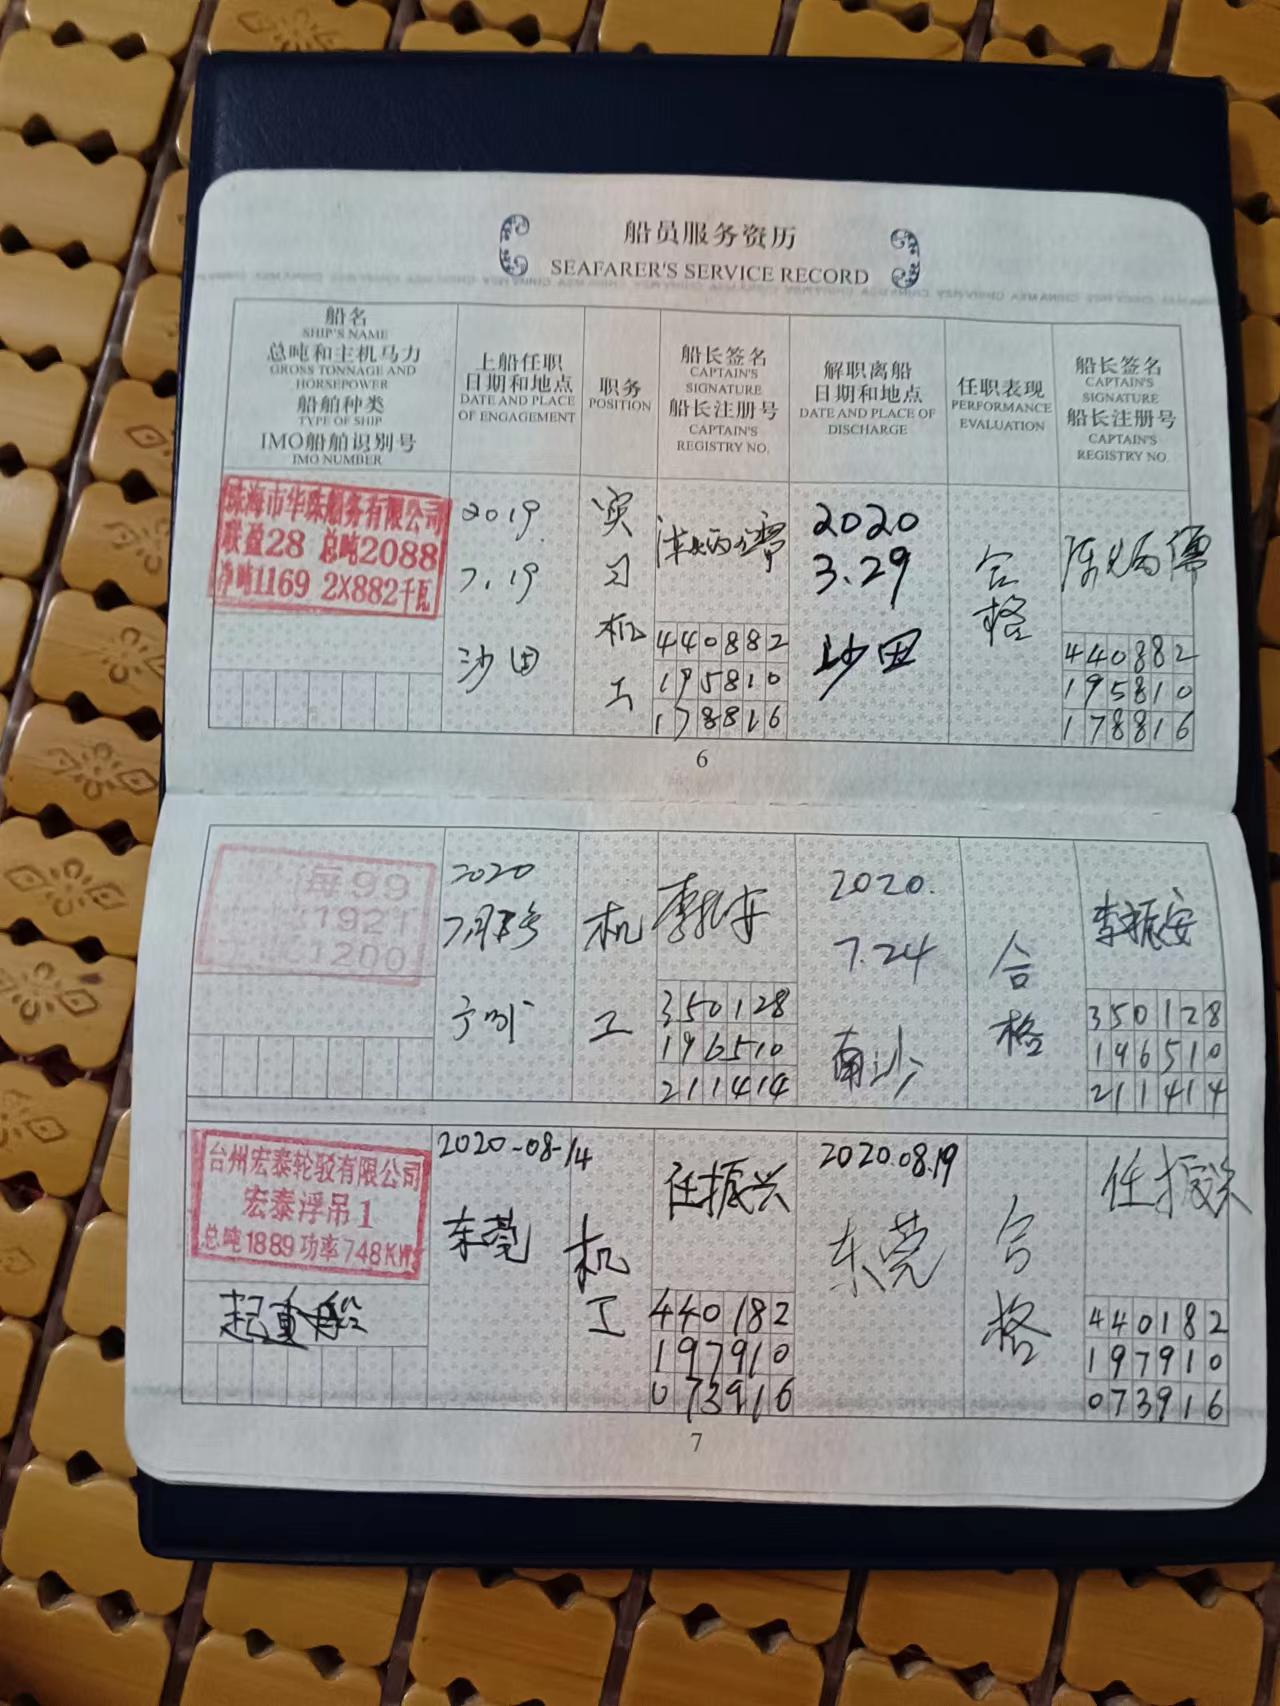 船员服务资历
SEAFARER'S SERVICE RECORD
船名
SHIP'S NAME
总吨和主机马力
GROSS TONNAGE AND
HORSEPOWER
船舶种类
TYPE OF SHIP
IMO船舶识别号
IMO NUMBER
上船任职
日期和地点
DATE AND PLACE
OF ENGAGEMENT
职务
POSITION
船长签名
CAPTAIN'S
SIGNATURE
船长注册号
CAPTAIN'S
REGISTRY NO.
解职离船
日期和地点
DATE AND PLACE OF
DISCHARGE
任职表现
PERFORMANCE
EVALUATION
船长签名
CAPTAIN'S
SIGNATURE
船长注册号
CAPTAIN'S
REGISTRY NO.
珠海市华珠船务有限公司
联益28 总吨2088
净吨1169 2X882千瓦
2019.
7.19
沙田
实
习
机
工
440882
195810
178816
2020
3.29
沙田
合
格
440882
195810
178816
6
海99
1921
1200
2020
7月
机
工
李振安
350128
196510
211414
2020.
7.24
南沙
合
格
李振安
350128
196510
211414
台州宏泰轮驳有限公司
宏泰浮吊1
总吨1889功率748KW
起重
2020-08-14
东莞
机
工
任振兴
440182
197910
073916
2020.08.19
东莞
合
格
任振兴
440182
197910
073916
7